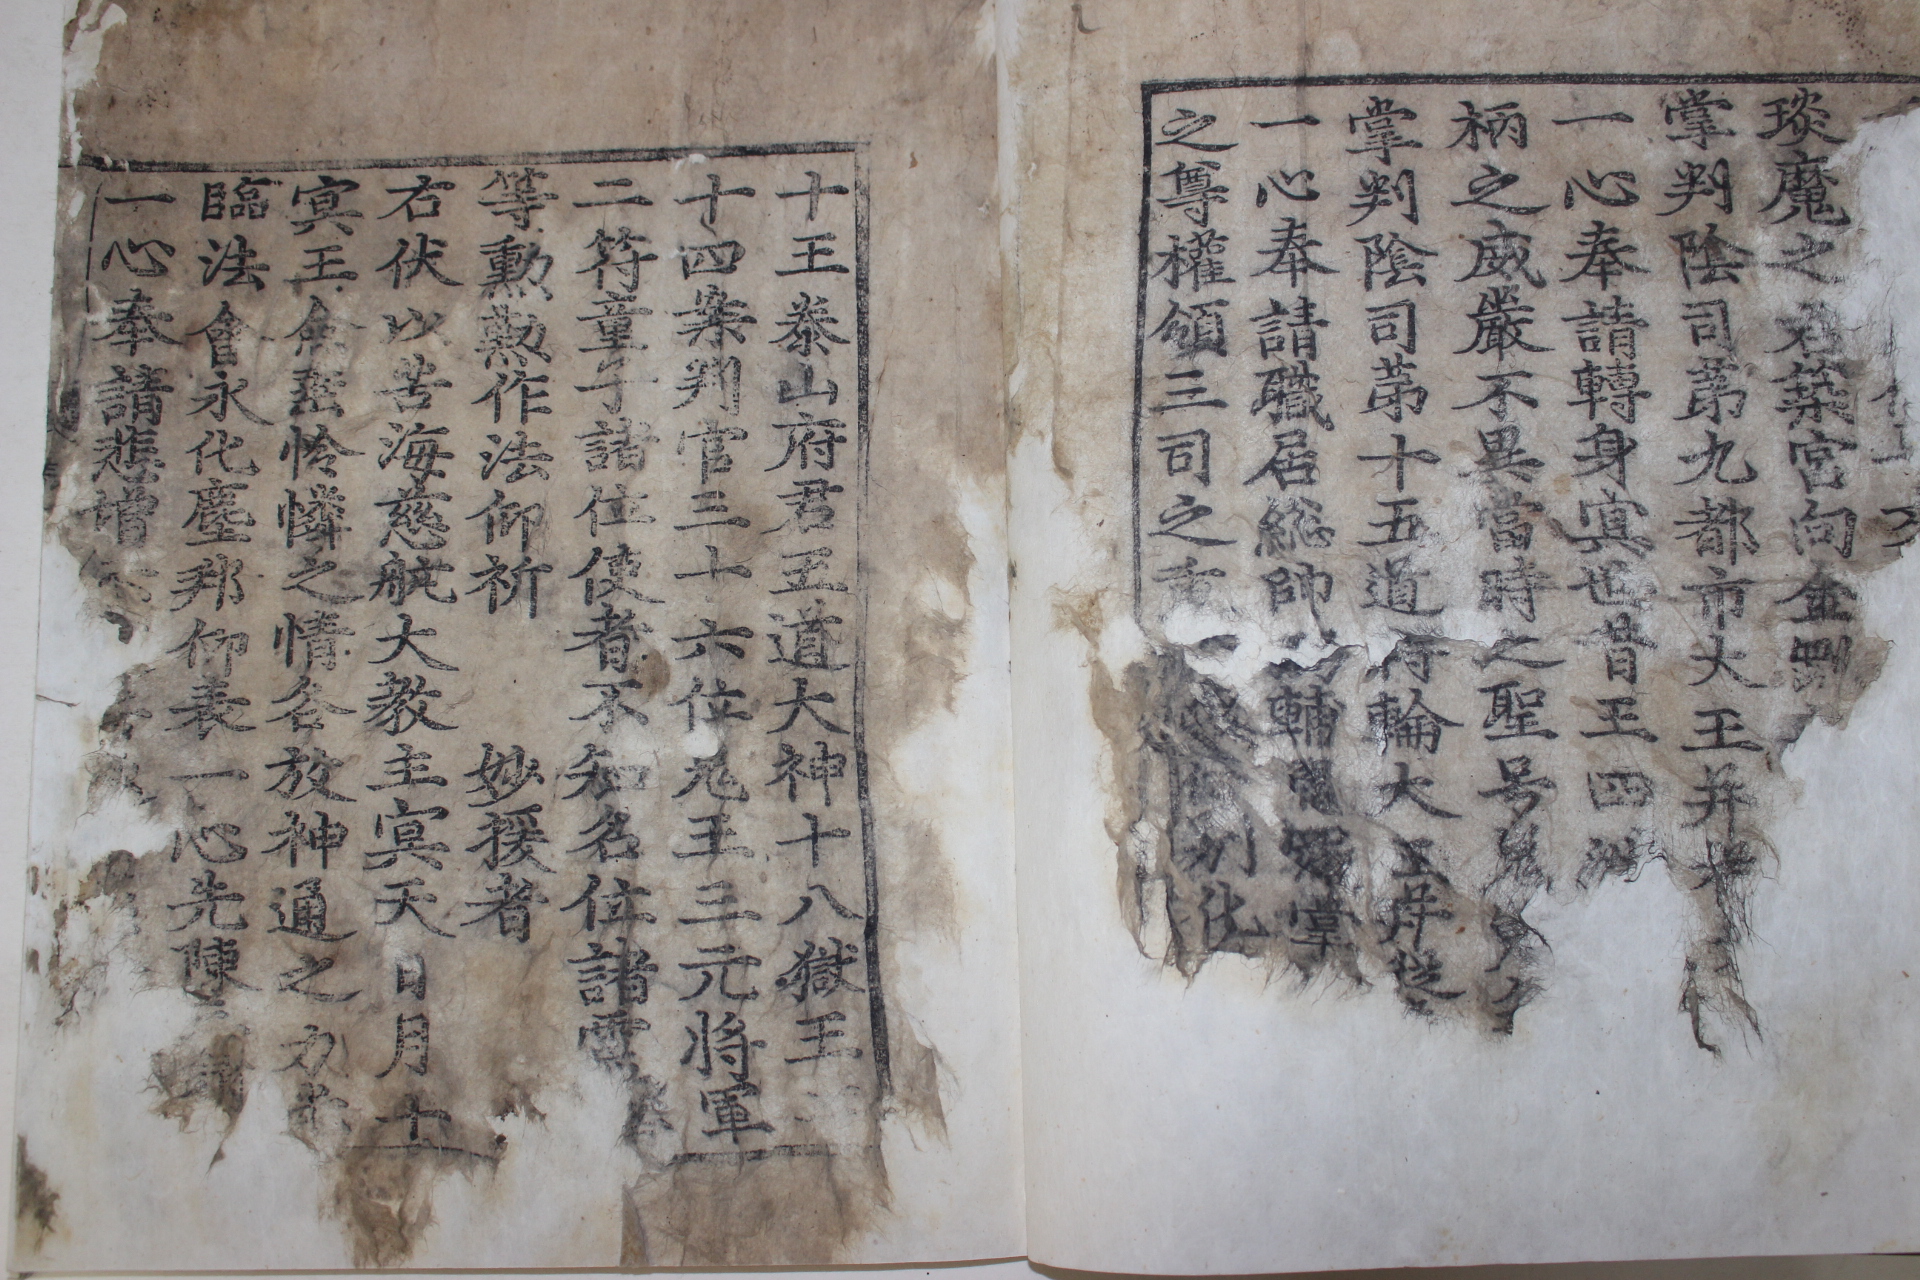 琰魔之君築宮向金剛
掌判陰司第九都市大王并
一心奉請轉身冥世昔王四洲
柄之威嚴不異當時之聖号
掌判陰司第十五道轉輪大王并從
一心奉請職居総帥輔掌
之尊權領三司之重別化
十王泰山府君五道大神十八獄王
十四案判官三十六位鬼王三元將軍
二符童子諸位使者不知名位諸靈
等勲勲作法仰祈 妙援者
右伏以苦海慈航大教主冥天日月十
冥王僉垂怜憐之情各放神通之力
臨法會永化塵邦仰表一心先陳
一心奉請悲增